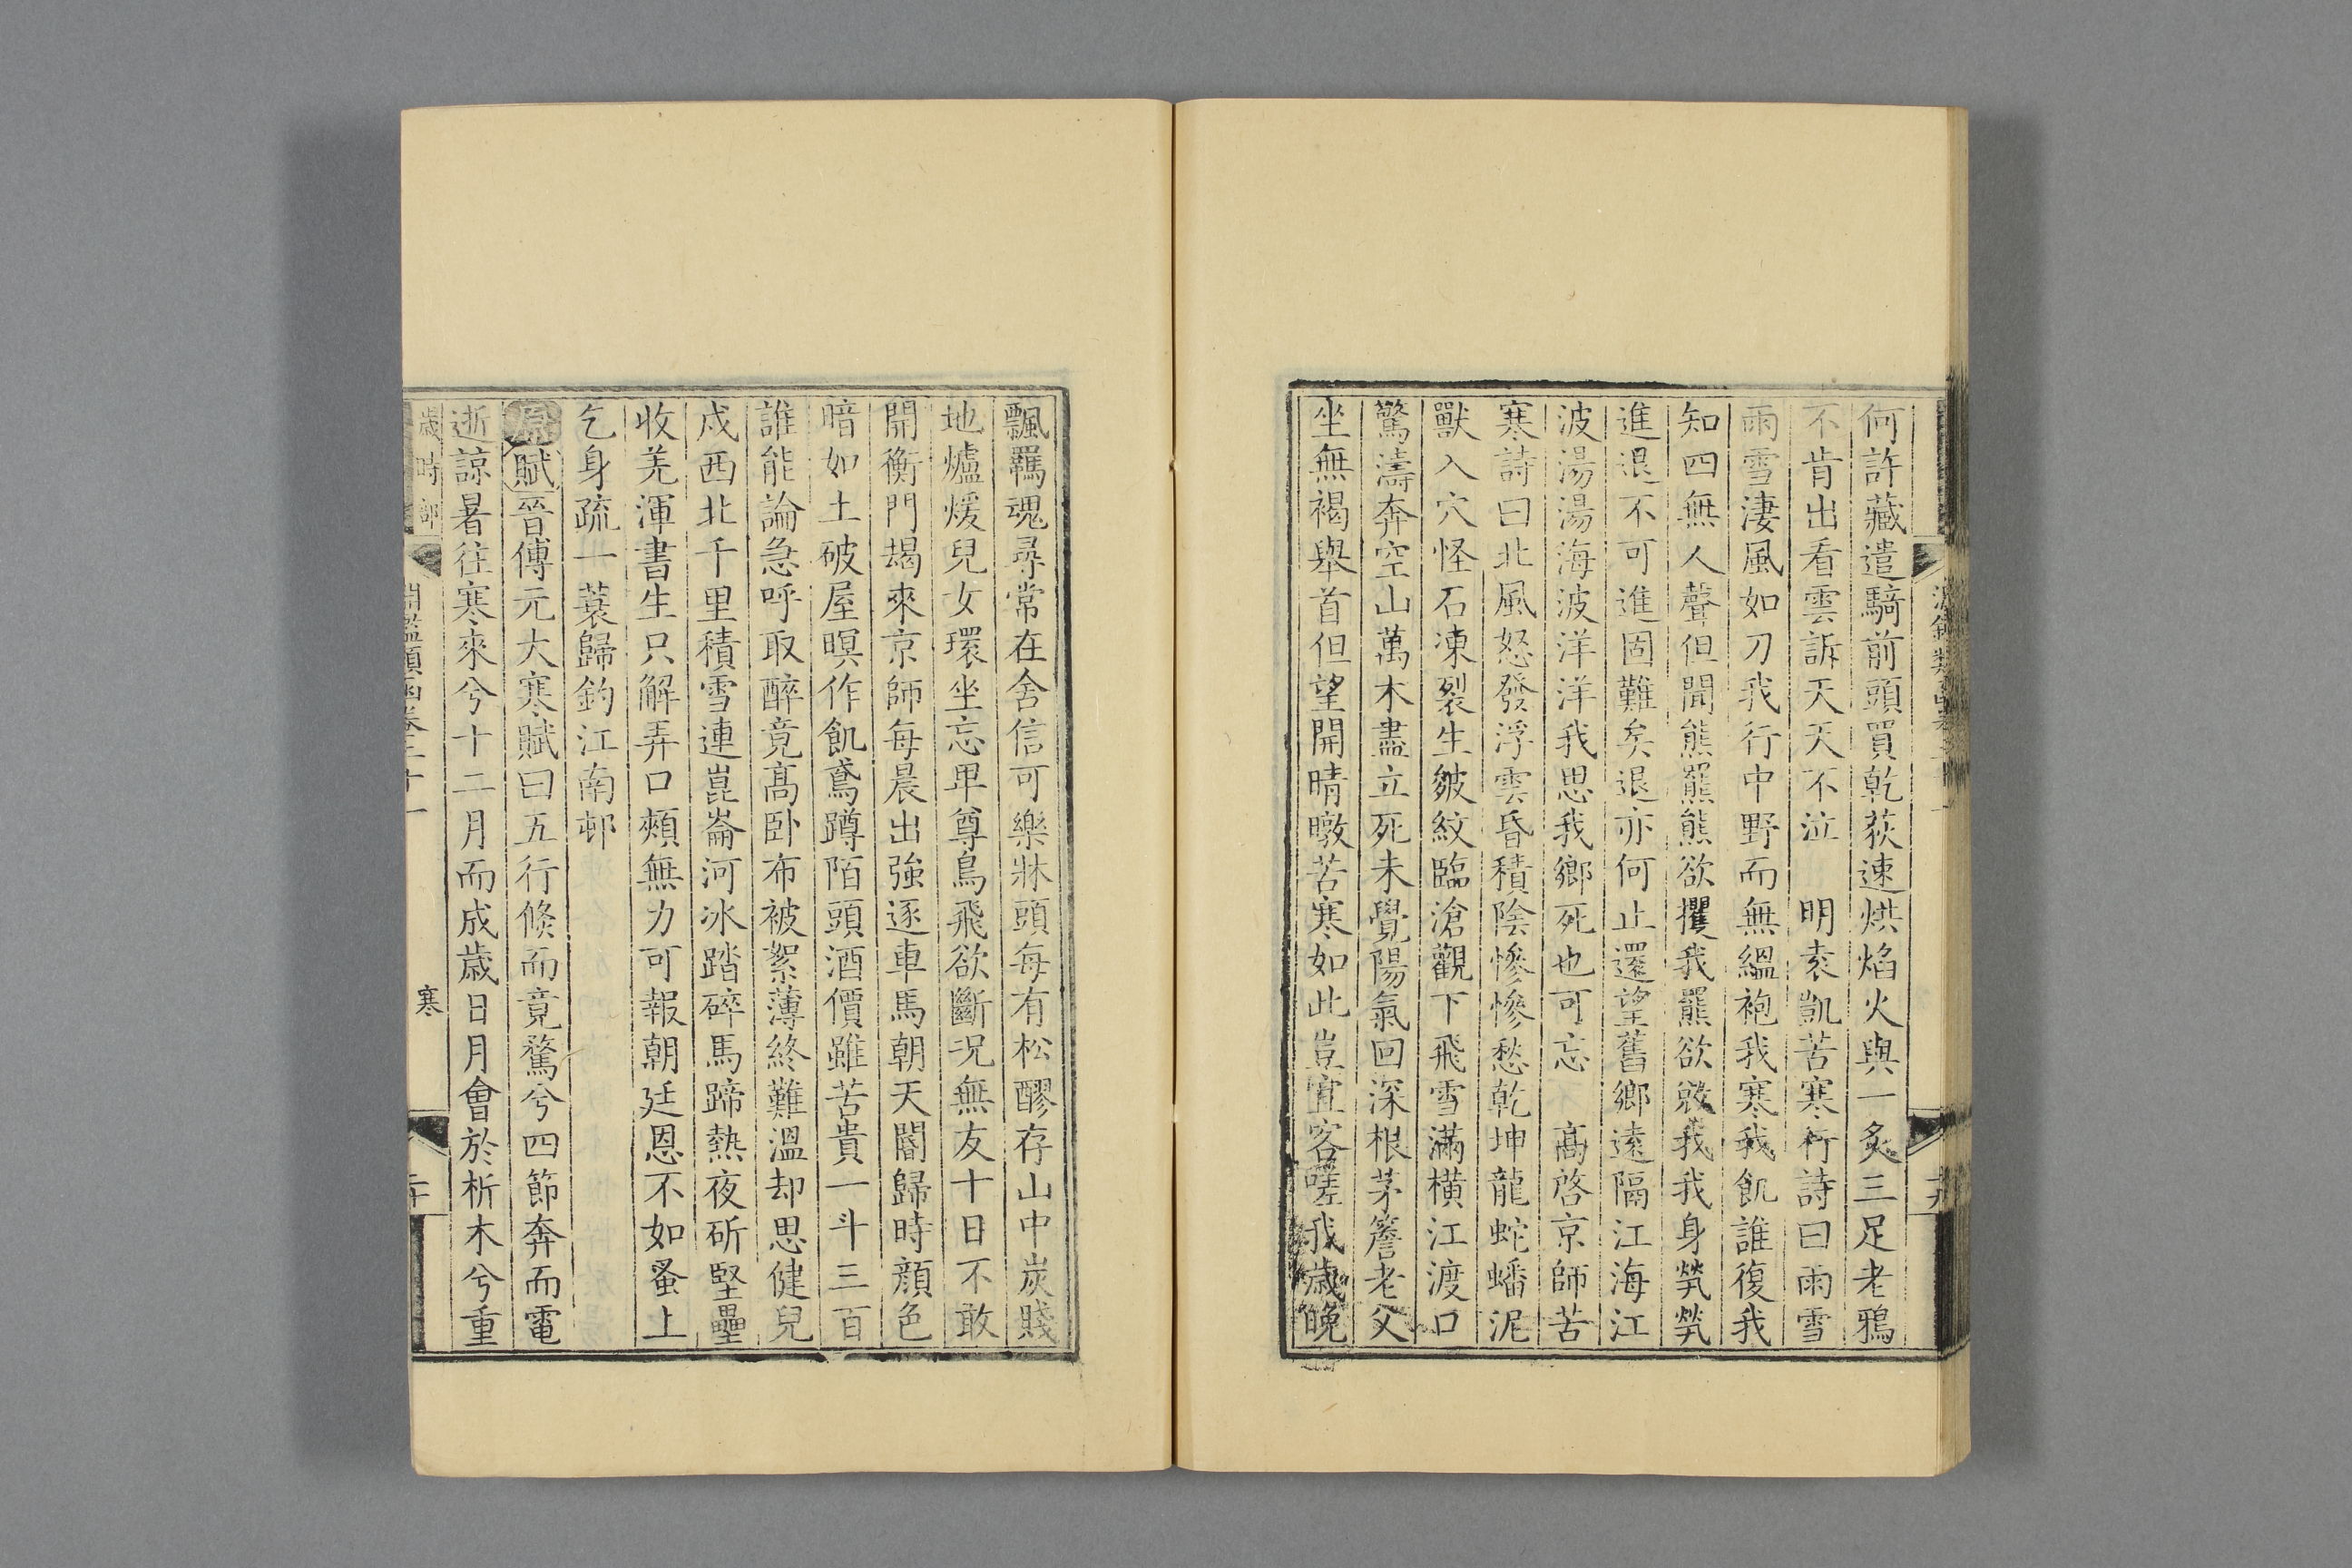 何許藏遣騎前頭買乾荻速烘焰火與一炙三足老鴉
不肯出看雲訴天天不泣　明袁凱苦寒行詩曰雨雪
雨雪淒風如刀我行中野而無縕袍我寒我飢誰復我
知四無人聲但聞熊羆熊欲攫我羆欲毀我我身煢煢
進退不可進固難矣退亦何止還望舊鄉遠隔江海江
波湯湯海波洋洋我思我鄉死也可忘　高啓京師苦
寒詩曰北風怒發浮雲昏積陰慘慘愁乾坤龍蛇蟠泥
獸入穴怪石凍裂生皴紋臨滄觀下飛雪滿橫江渡口
驚濤奔空山萬木盡立死未覺陽氣回深根茅簷老父
坐無褐舉首但望開晴暾苦寒如此豈宜客嗟我歲晚
飄羈魂尋常在舍信可樂牀頭每有松醪存山中炭賤
地爐煖兒女環坐忘卑尊鳥飛欲斷況無友十日不敢
開衡門朅來京師每晨出強逐車馬朝天閽歸時顏色
暗如土破屋暝作飢鳶蹲陌頭酒價雖苦貴一斗三百
誰能論急呼取醉竟高卧布被絮薄終難溫却思健兒
戍西北千里積雪連崑崙河冰踏碎馬蹄熱夜斫堅壘
收羌渾書生只解弄口頰無力可報朝廷恩不如蚤上
乞身疏一蓑歸釣江南邨
原賦晉傅元大寒賦曰五行倏而竟騖兮四節奔而電
逝諒暑往寒來兮十二月而成歲日月會於析木兮重
歲時部　淵鑑類函卷二十一　寒　二十